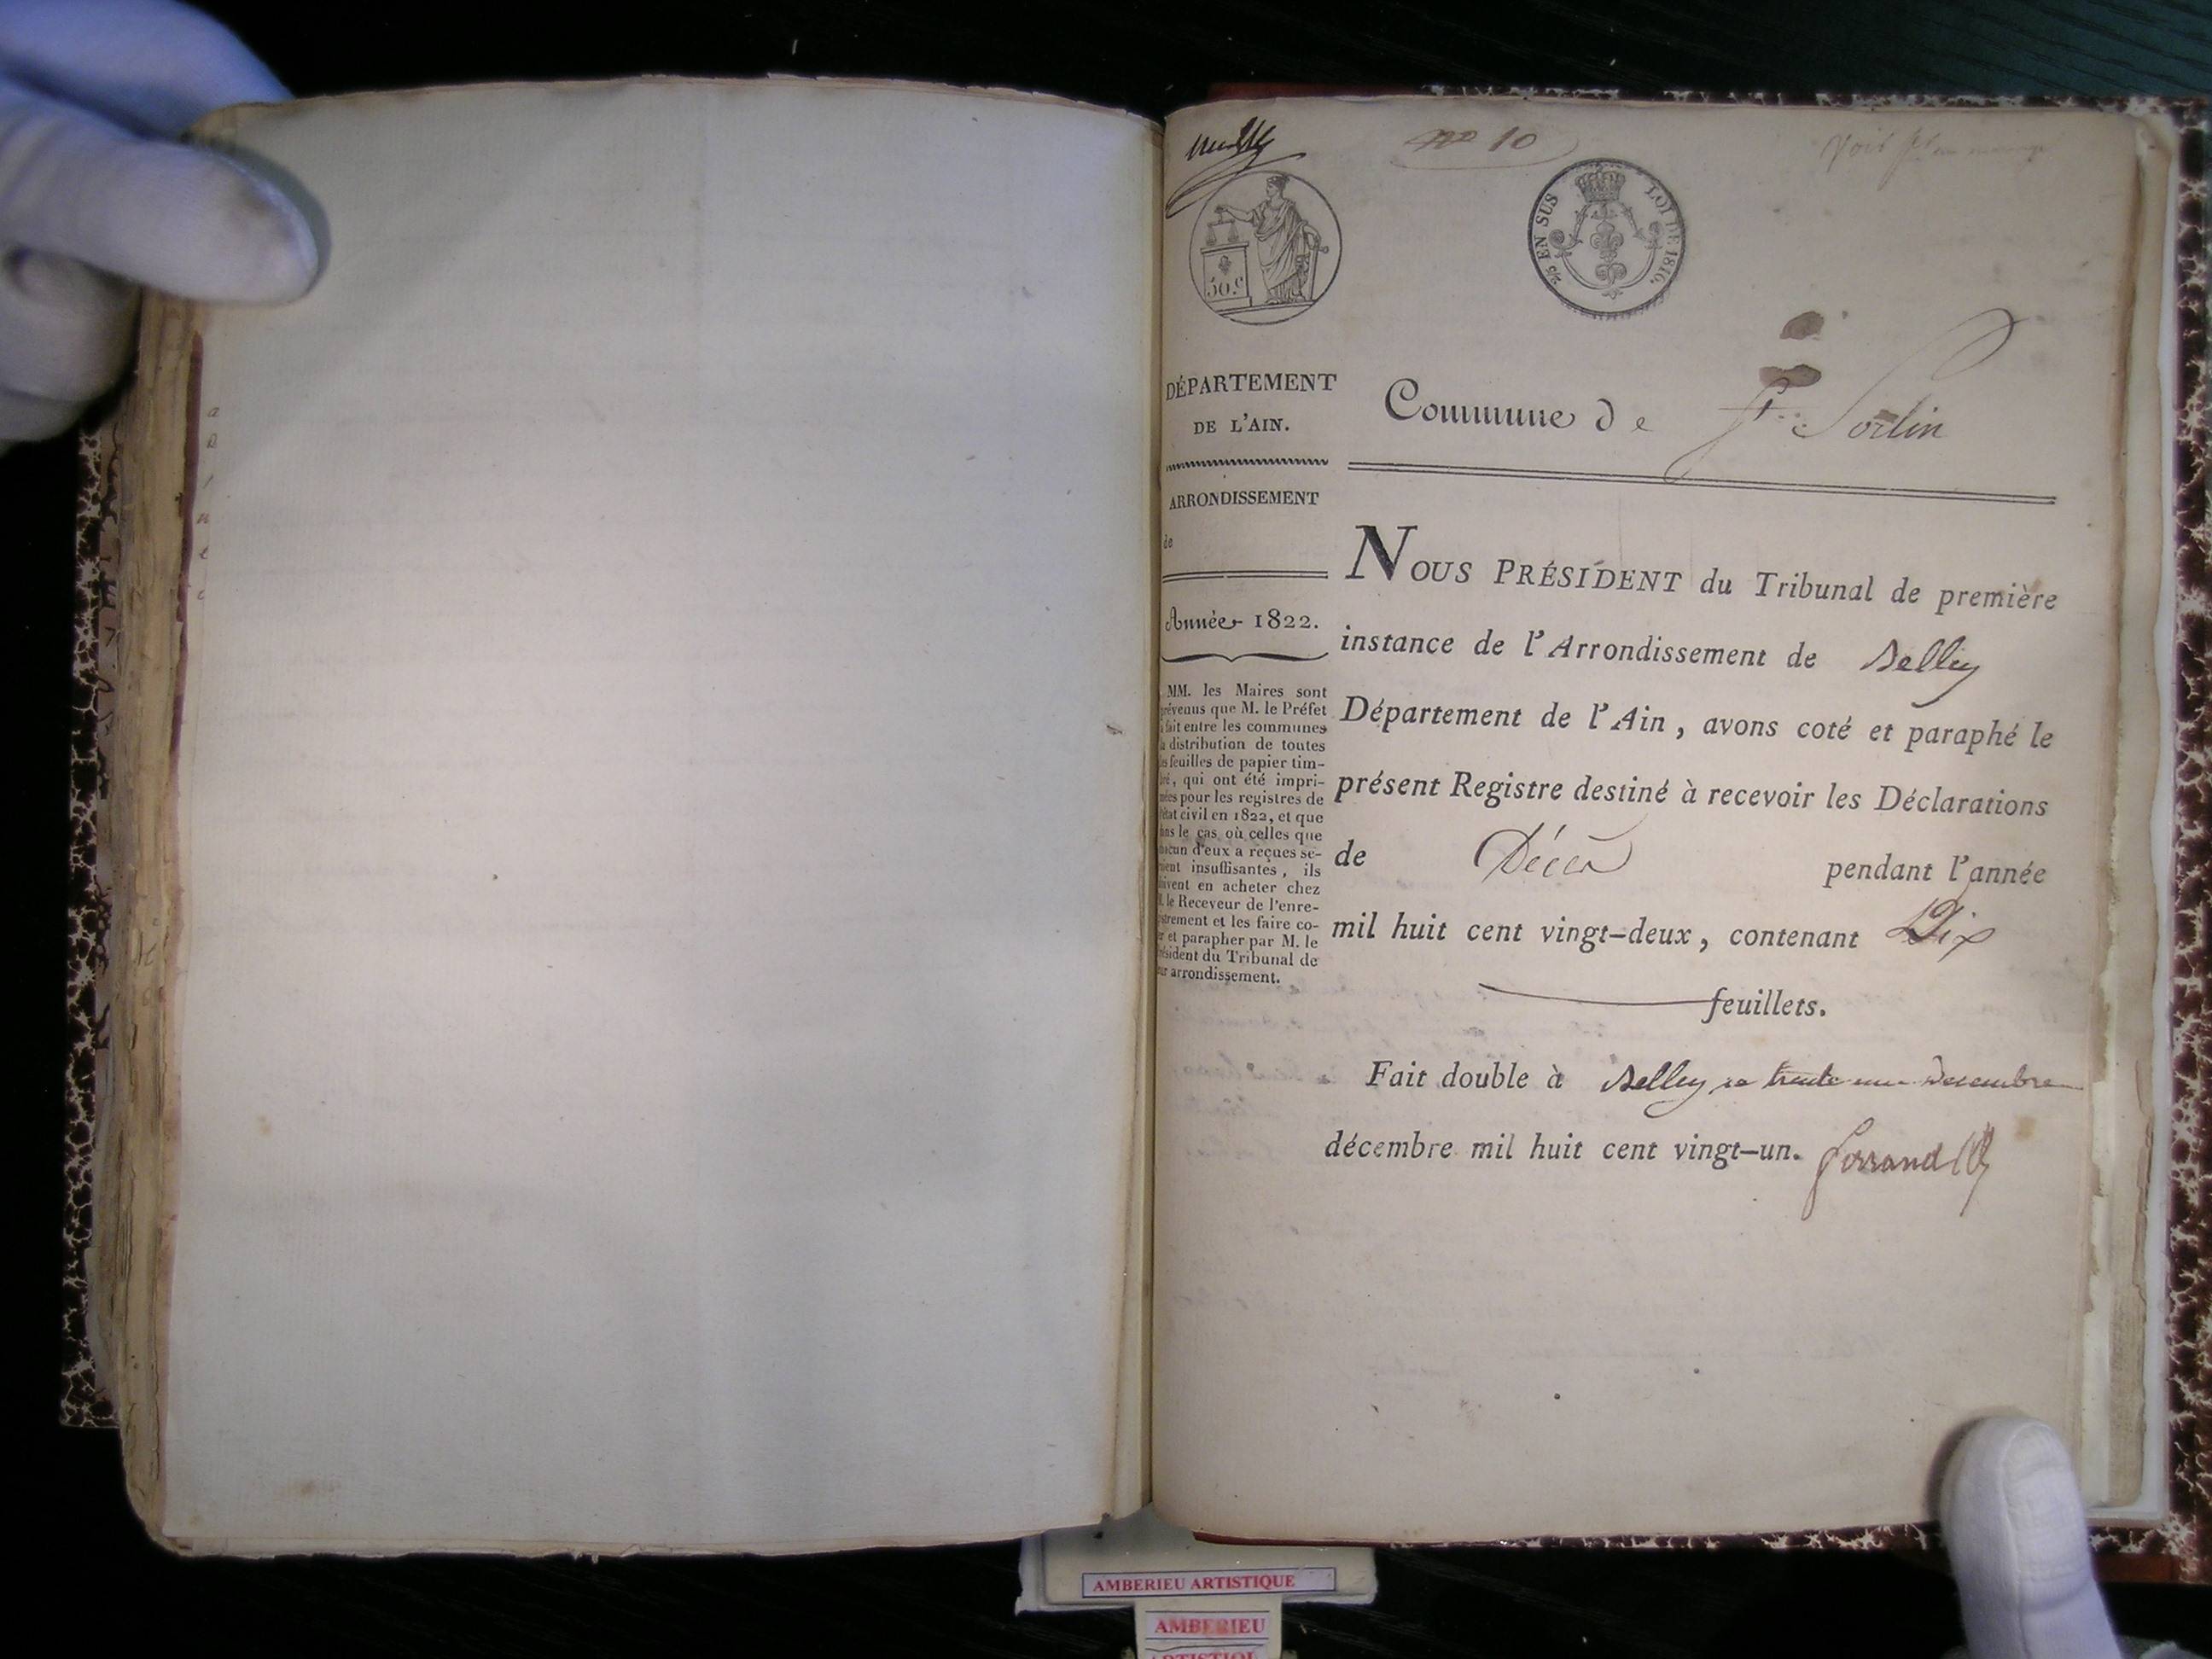 nº 10
5/5 EN SUS LOI DE 1816.
50.c
DÉPARTEMENT
DE L'AIN.
ARRONDISSEMENT
de
Année 1822.
MM. les Maires sont
prévenus que M. le Préfet
a fait entre les communes
la distribution de toutes
les feuilles de papier tim-
bré, qui ont été impri-
mées pour les registres de
l'état civil en 1822, et que
dans le cas où celles que
chacun d'eux a reçues se-
raient insuffisantes, ils
doivent en acheter chez
M. le Receveur de l'enre-
gistrement et les faire co-
ter et parapher par M. le
Président du Tribunal de
leur arrondissement.
Commune de St. Sorlin
NOUS PRÉSIDENT du Tribunal de première
instance de l'Arrondissement de Belley
Département de l'Ain, avons coté et paraphé le
présent Registre destiné à recevoir les Déclarations
de Décès pendant l'année
mil huit cent vingt-deux, contenant Dix
feuillets.
Fait double à Belley ce trente un Decembre
décembre mil huit cent vingt-un.
AMBERIEU ARTISTIQUE
AMBERIEU
ARTISTIQUE